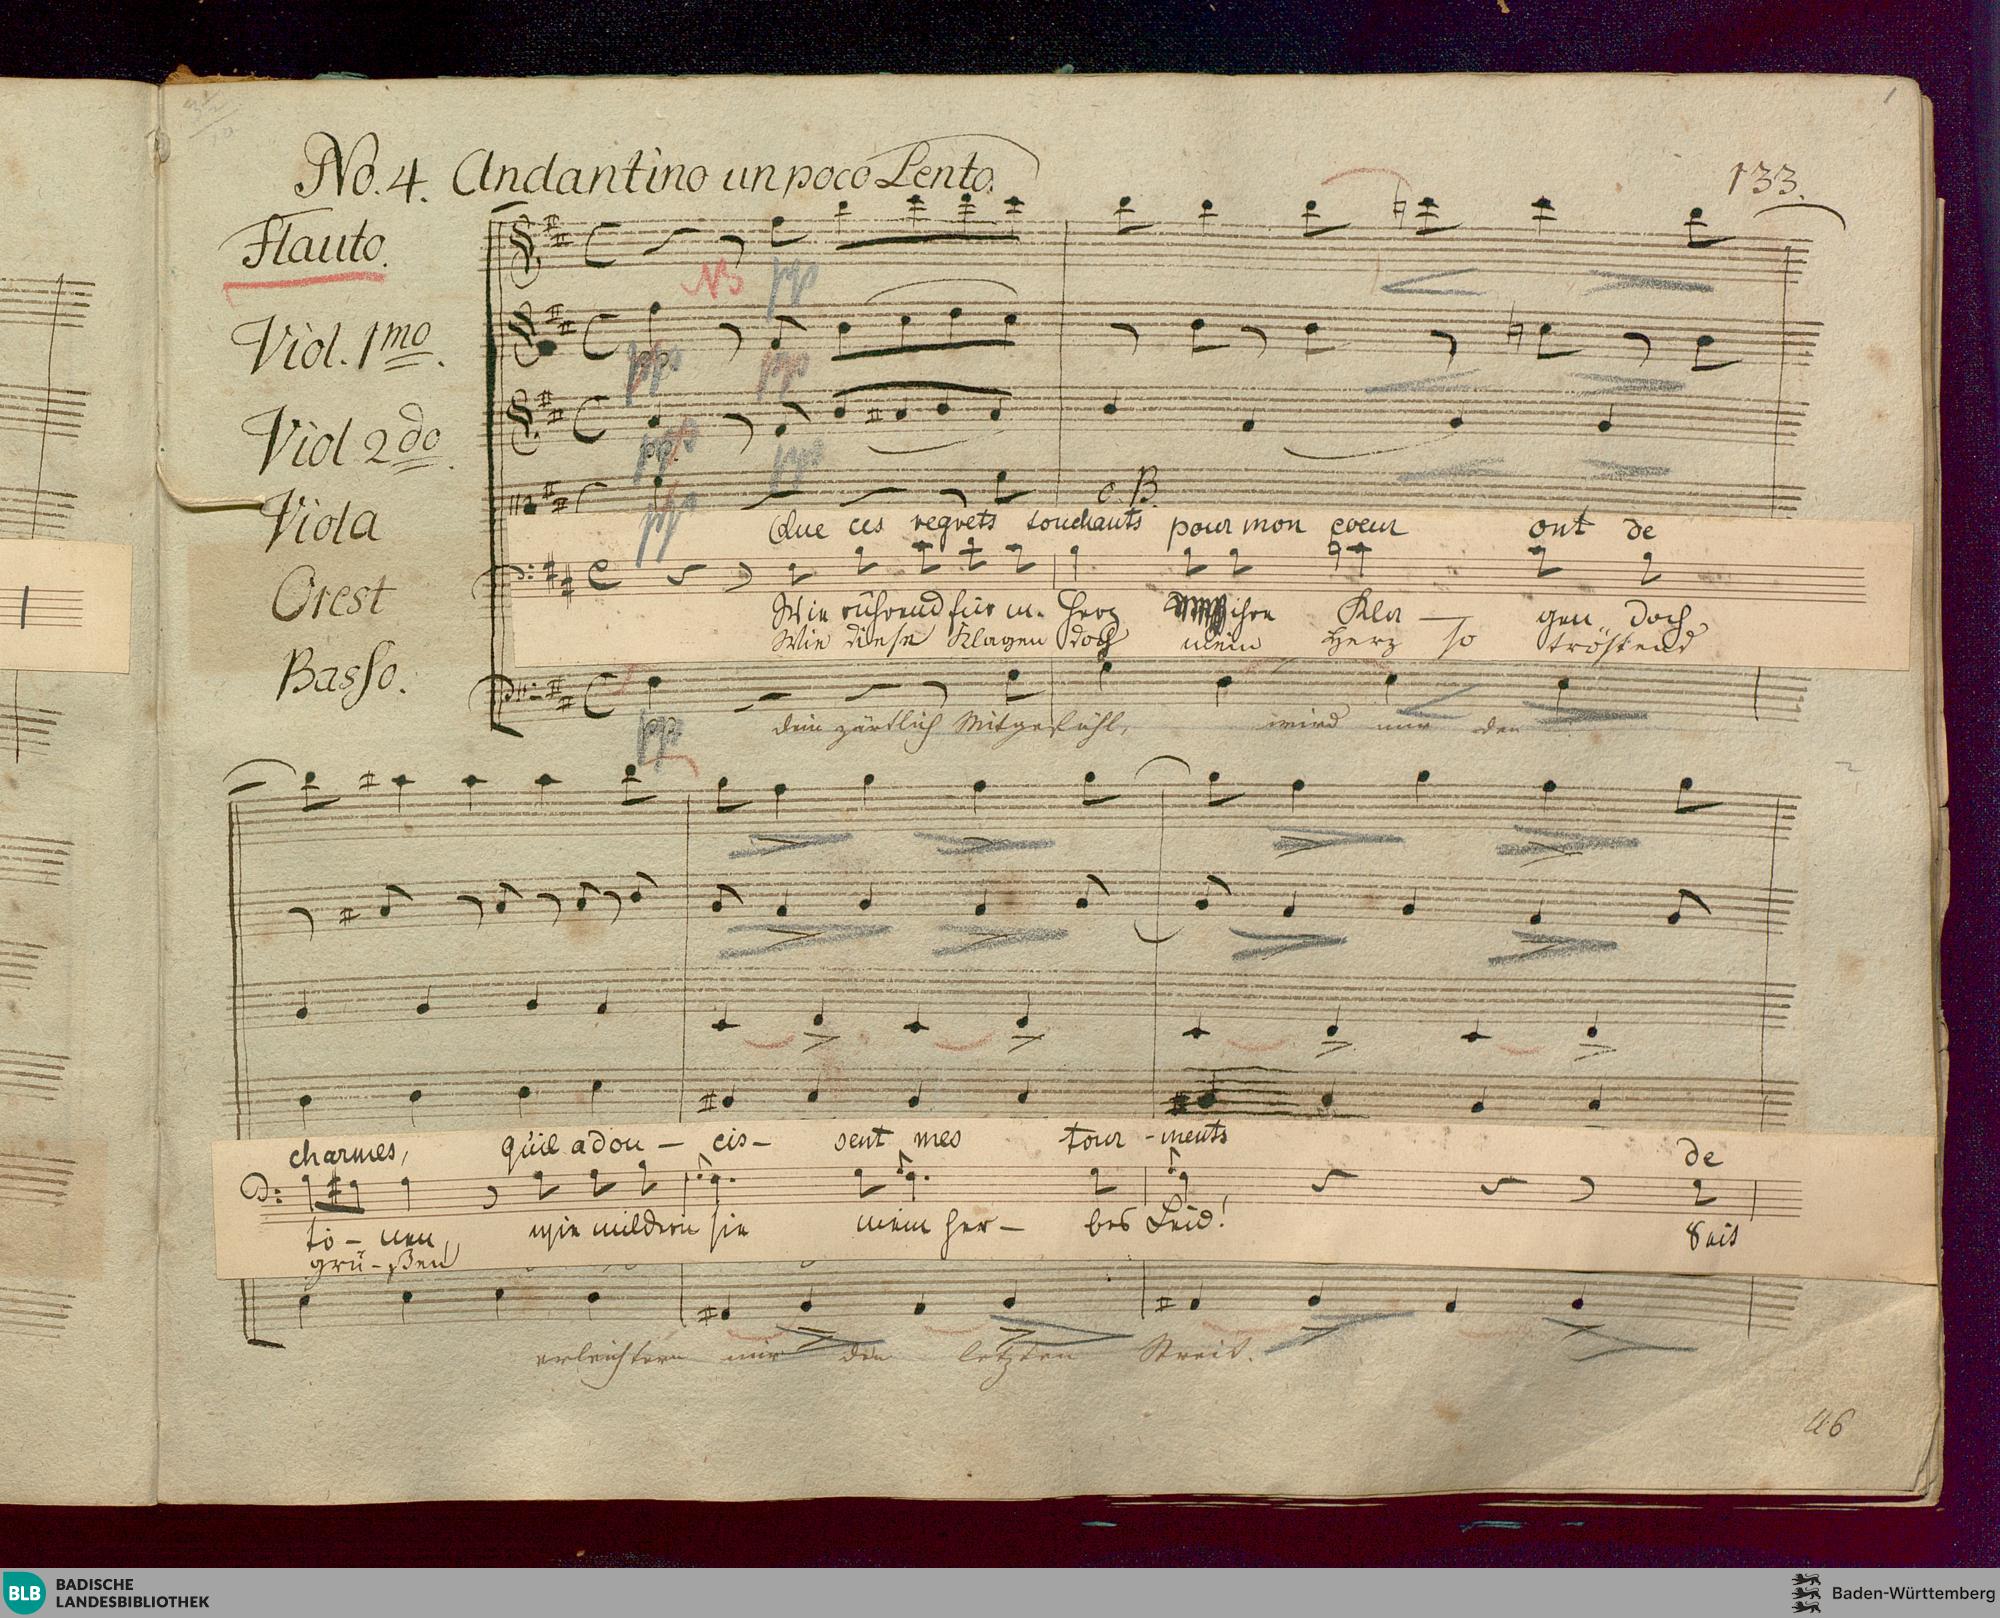 No. 4. Andantino un poco Lento.
133.
Flauto.
NB
pp
Viol. 1mo.
pp pp
Viol 2do.
pp pp
Viola
pp
c. B.
Que ces regrets touchants pour mon coeur ont de
Orest
Wie rührend für m. Herz ihre Kla – gen doch
Wie diese Klagen doch mein Herz so tröstend
Basso.
pp
dein zärtlich Mitgefühl, wird nur den
charmes, qu'il adou – cis – sent mes tour - ments de
tö – nen, wie mildern sie mein her – bes Leid! Seit
grü – ßen
erleichtern mir den letzten Streit.
46
BLB BADISCHE
LANDESBIBLIOTHEK
Baden-Württemberg